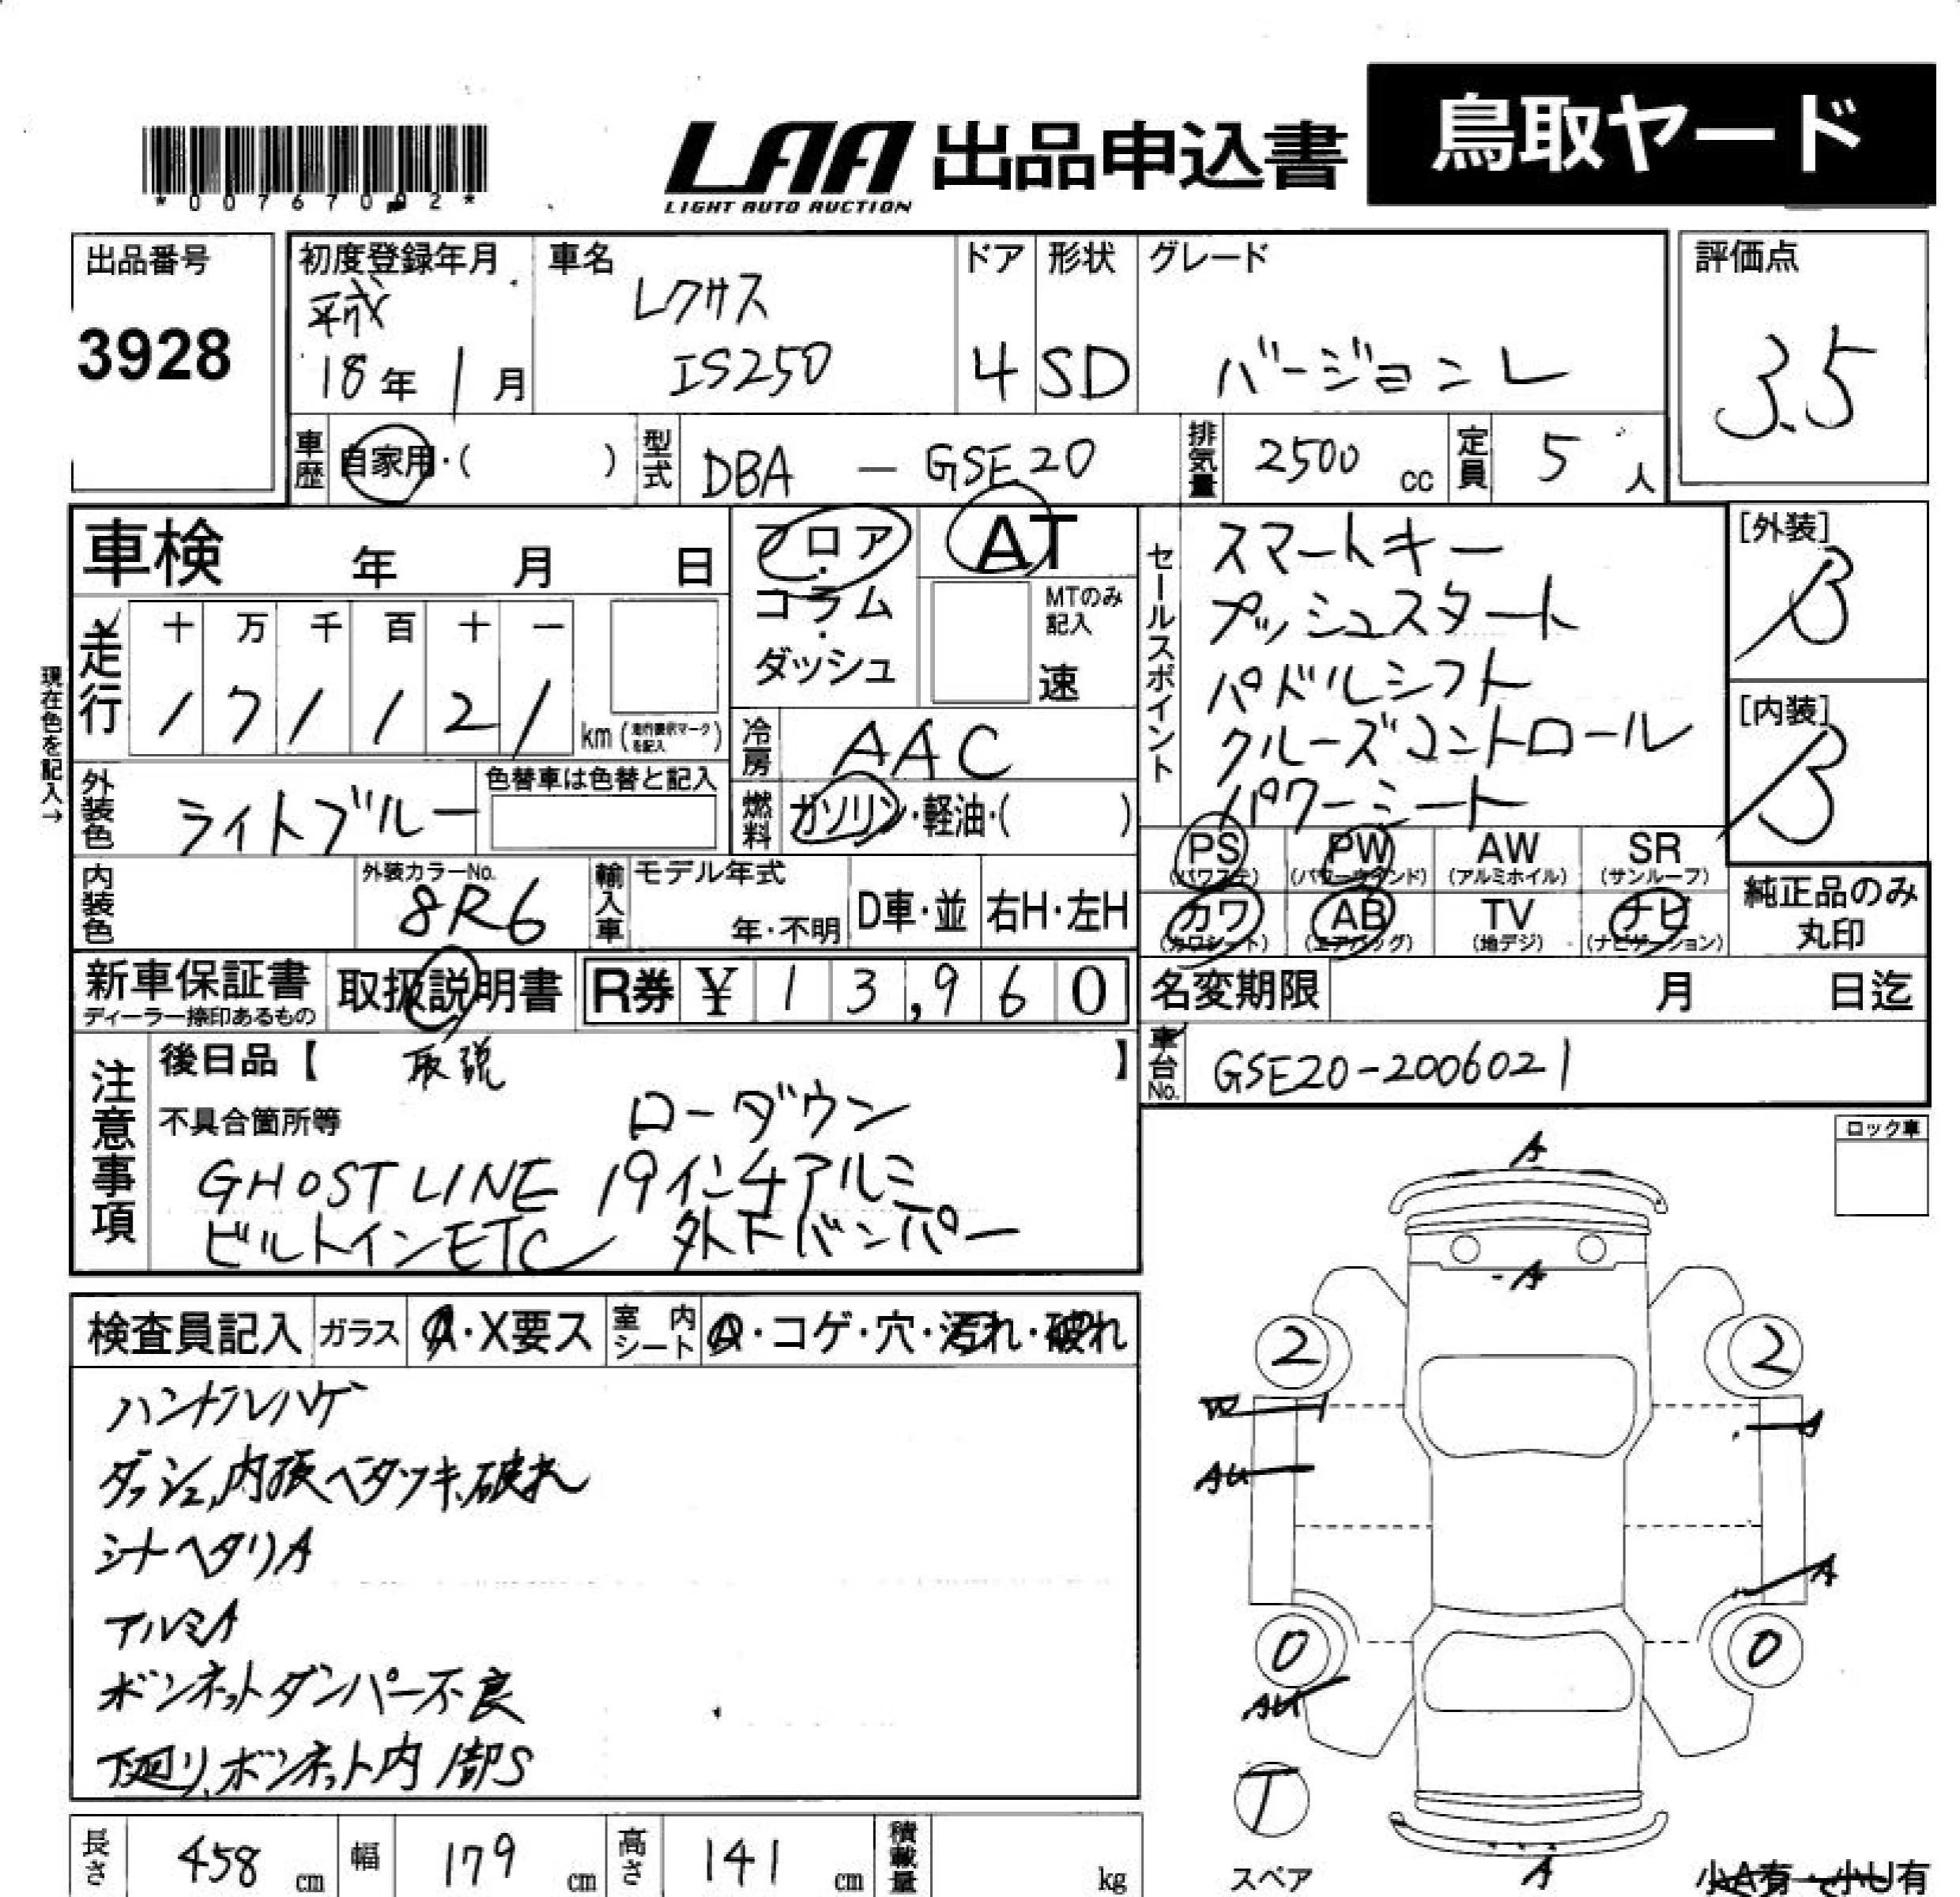 LAA 出品申込書 鳥取ヤード
LIGHT AUTO AUCTION
出品番号
3928
初度登録年月
平成
18年 1月
車名
レクサス
IS250
ドア
4
形状
SD
グレード
バージョンL
評価点
3.5
車歴 自家用・( )
型式 DBA - GSE20
排気量 2500 cc
定員 5 人
車検 年 月 日
走行 十 万 千 百 十 一
1 7 1 1 2 1 km (走行表示マークを記入)
現在色を記入→
フロア・コラム・ダッシュ
AT
MTのみ記入
速
冷房 AAC
燃料 ガソリン・軽油・( )
セールスポイント
スマートキー
プッシュスタート
パドルシフト
クルーズコントロール
パワーシート
[外装]
B
[内装]
B
外装色 ライトブルー
色替車は色替と記入
内装色
外装カラーNo.
8R6
輸入車 モデル年式
年・不明 D車・並 右H・左H
PS (パワステ) PW (パワーウインド) AW (アルミホイル) SR (サンルーフ)
カワ (カワシート) AB (エアバッグ) TV (地デジ) ナビ (ナビゲーション)
純正品のみ
丸印
新車保証書
ディーラー捺印あるもの
取扱説明書
R券 ¥ 13,960
名変期限 月 日迄
車台No. GSE20-2006021
注意事項
後日品【 取説 】
不具合箇所等 ローダウン
GHOST LINE 19インチアルミ
ビルトインETC 外下バンパー
ロック車
検査員記入 ガラス A・X要ス 室内シート ・コゲ・穴・汚れ・破れ
ハンドルハゲ
ダッシュ,内張ベタツキ、破れ
シートヘタリA
アルミA
ボンネットダンパー不良
下廻り、ボンネット内部S
A
A
2
2
A
AU
A
0
0
AU
T
スペア
A
小A有・小U有
長さ 458 cm 幅 179 cm 高さ 141 cm 積載量 kg